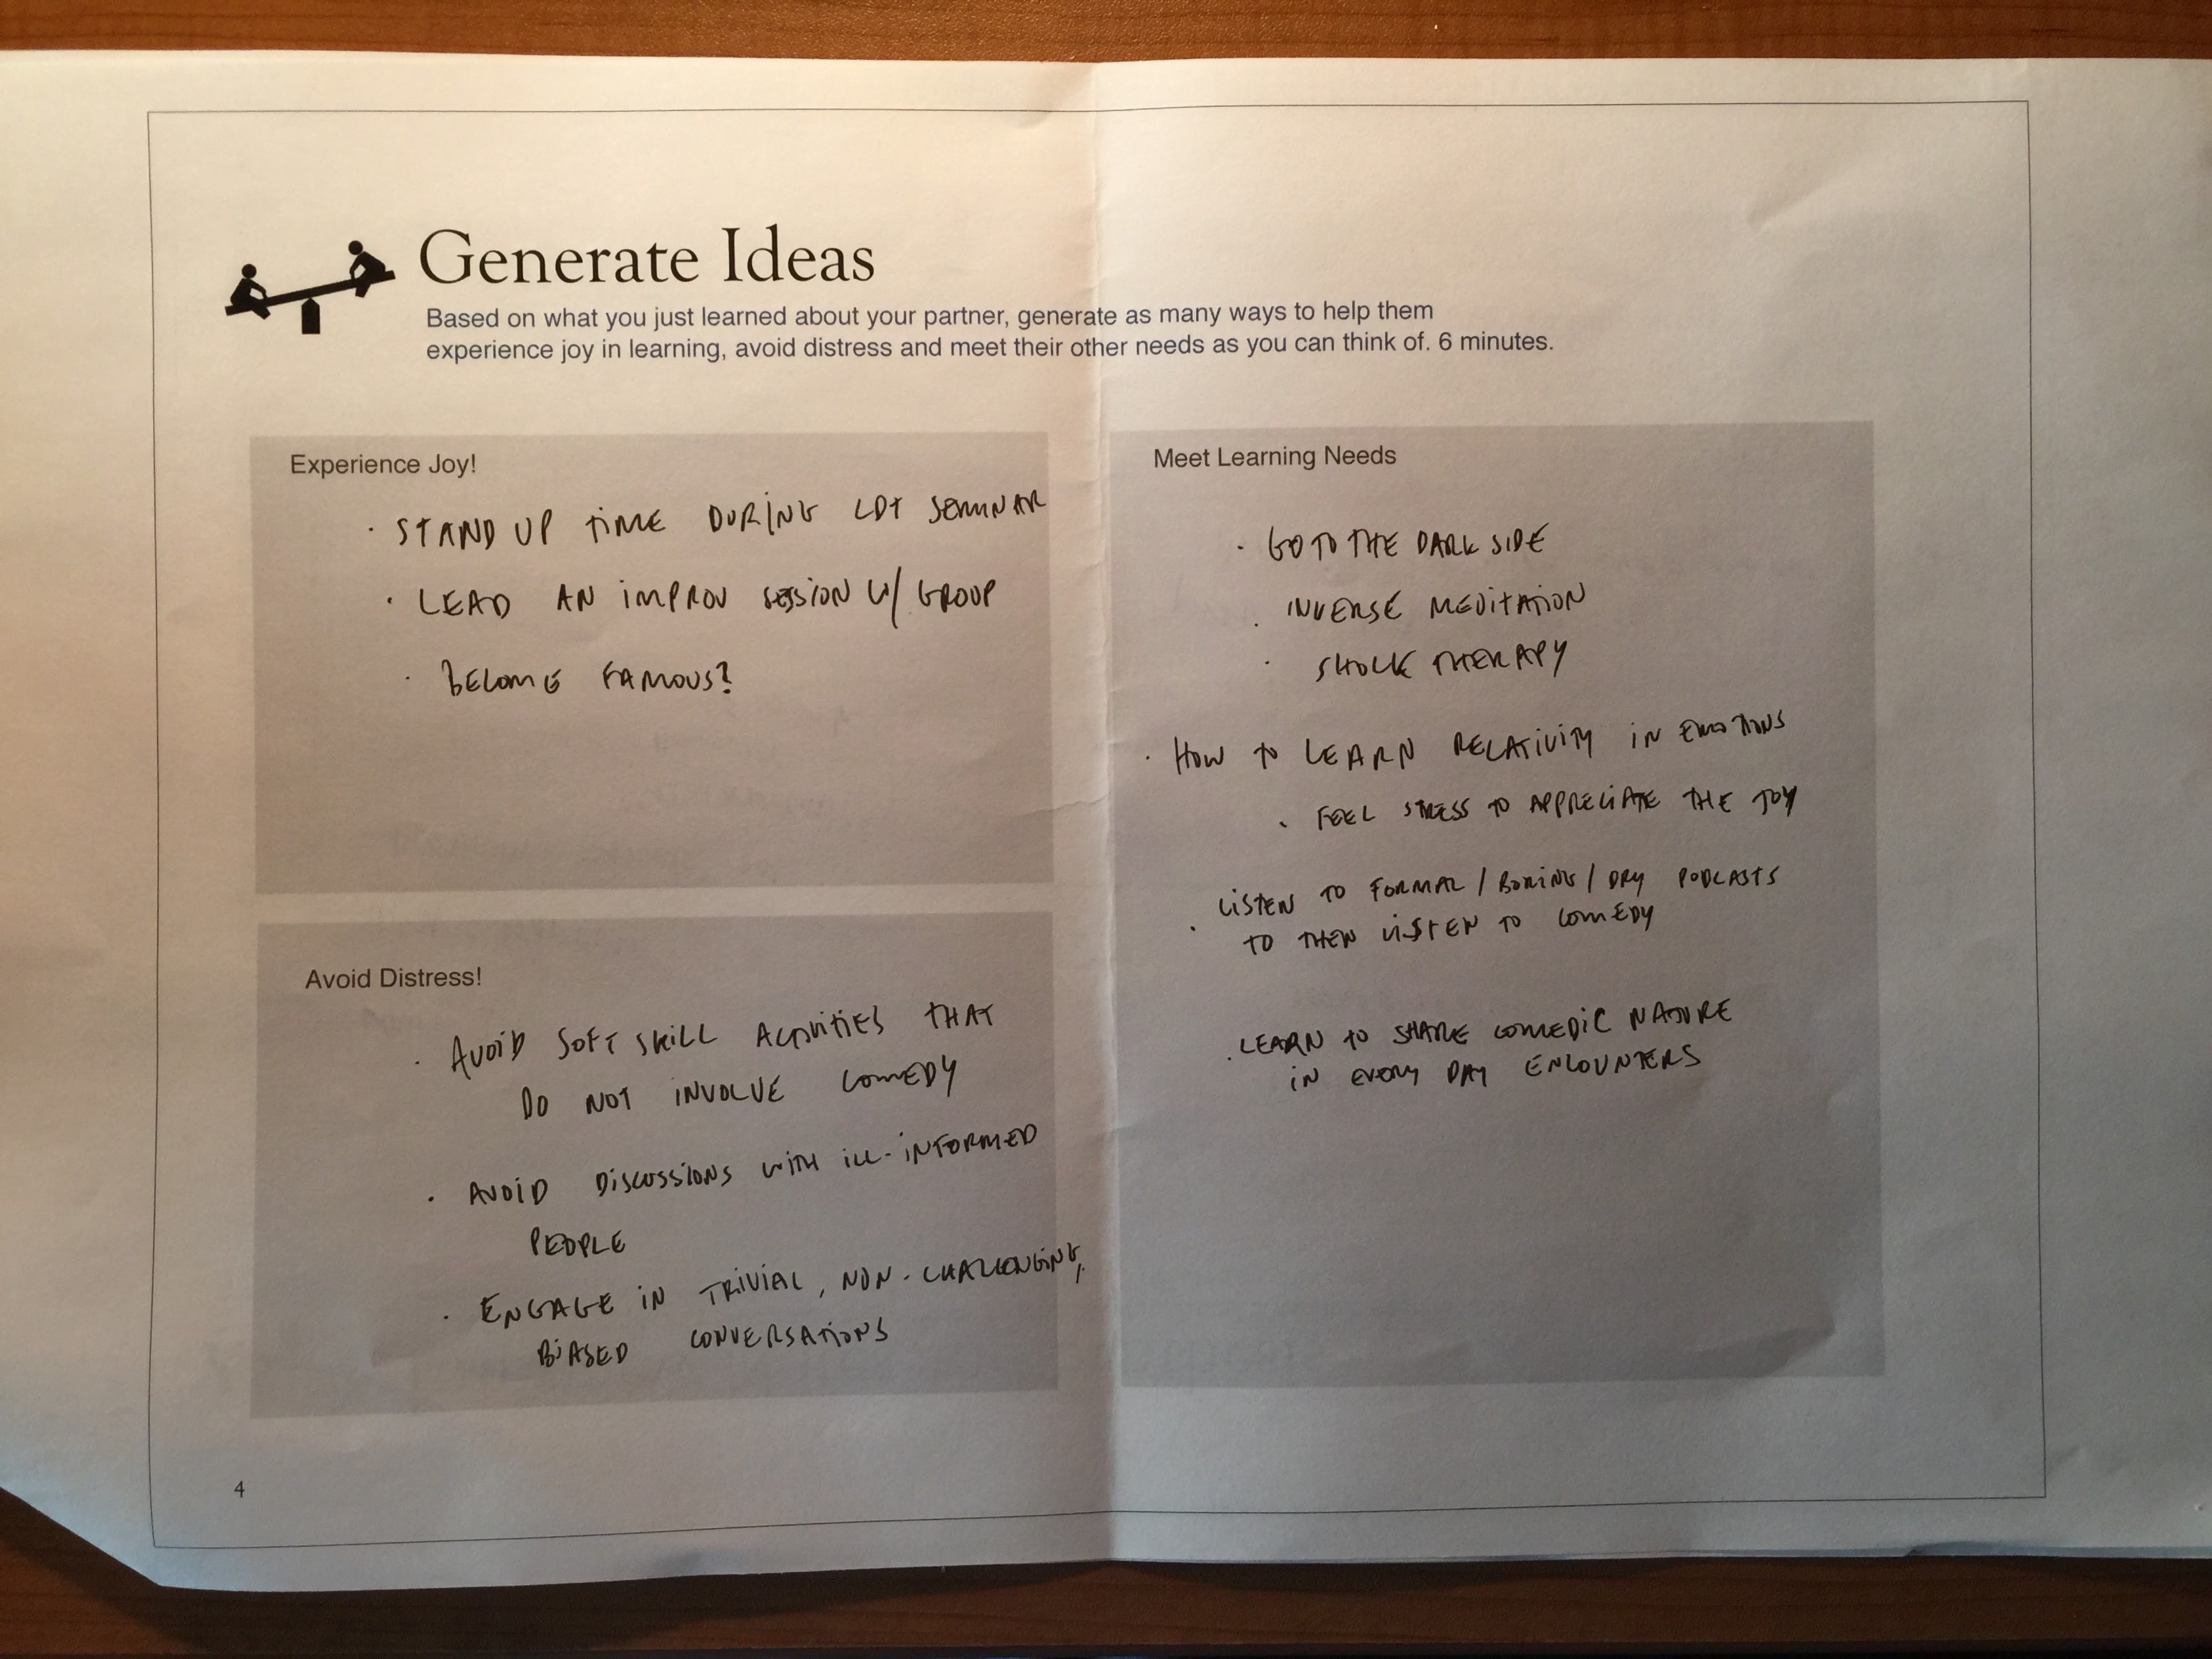 Generate Ideas
Based on what you just learned about your partner, generate as many ways to help them
experience joy in learning, avoid distress and meet their other needs as you can think of. 6 minutes.
Experience Joy!
· STAND UP TIME DURING LDT SEMINAR
· LEAD AN IMPROV SESSION W/ GROUP
· BECOME FAMOUS?
Avoid Distress!
· AVOID SOFT SKILL ACTIVITIES THAT
DO NOT INVOLVE COMEDY
· AVOID DISCUSSIONS WITH ILL-INFORMED
PEOPLE
· ENGAGE IN TRIVIAL, NON-CHALLENGING,
BIASED CONVERSATIONS
Meet Learning Needs
· GO TO THE DARK SIDE
· INVERSE MEDITATION
· SHOCK THERAPY
· HOW TO LEARN RELATIVITY IN EMOTIONS
· FEEL STRESS TO APPRECIATE THE JOY
· LISTEN TO FORMAL / BORING / DRY PODCASTS
TO THEN LISTEN TO COMEDY
· LEARN TO SHARE COMEDIC NATURE
IN EVERY DAY ENCOUNTERS
4